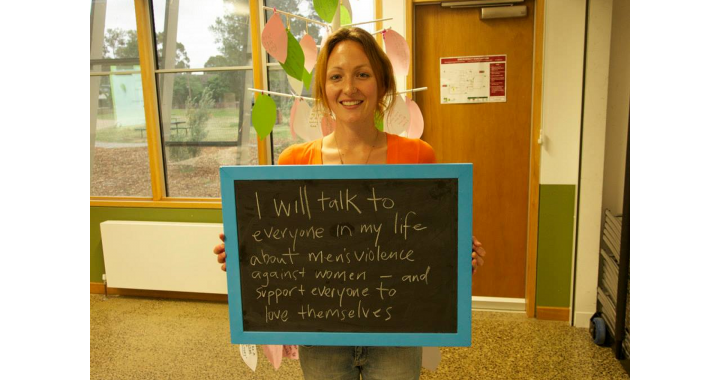 I will talk to
everyone in my life
about men's violence
against women – and
support everyone to
love themselves